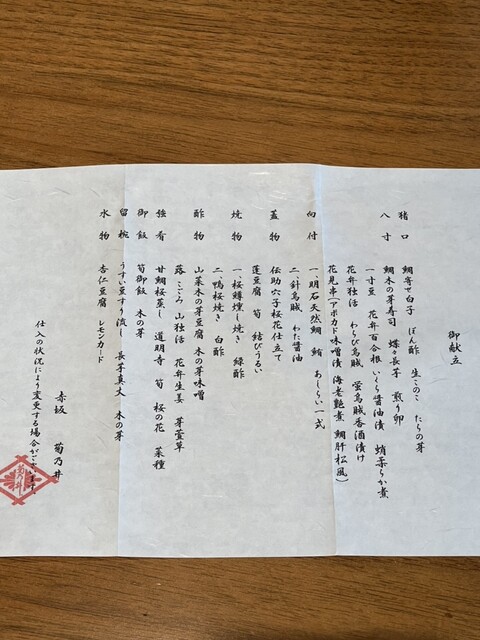 御献立
猪口　鯛寄せ白子　ぽん酢　生このこ　たらの芽
八寸　鯛木の芽寿司　蝶々長芋　煎り卵
一寸豆　花弁百合根　いくら醤油漬　蛸柔らか煮
花弁独活　わらび烏賊　蛍烏賊香酒漬け
花見串(アボカド味噌漬　海老艶煮　鯛肝松風)
向付　一、明石天然鯛　鮪　あしらい一式
二、針烏賊　わた醤油
蓋物　伝助穴子桜花仕立て
蓬豆腐　筍　結びうるい
焼物　一、桜鱒燻し焼き　緑酢
二、鴨桜焼き　白酢
酢物　山菜木の芽豆腐　木の芽味噌
蕗　こごみ　山独活　花弁生姜　芽萱草
強肴　甘鯛桜蒸し　道明寺　筍　桜の花　菜種
御飯　筍御飯　木の芽
留椀　うすい豆すり流し　長芋真丈　木の芽
水物　杏仁豆腐　レモンカード
赤坂　菊乃井
仕入の状況により変更する場合がございます。
菊乃井